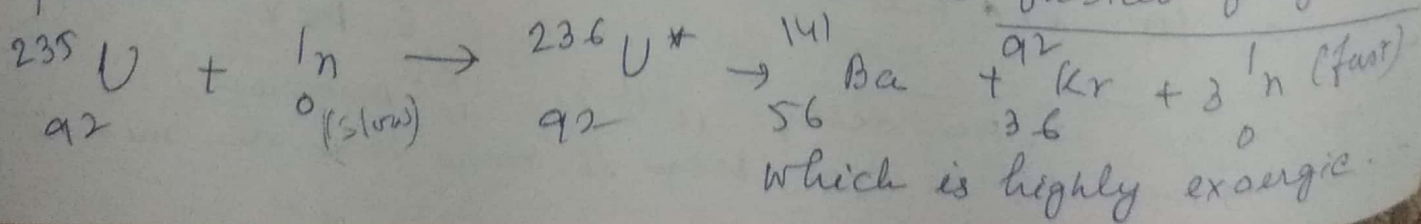 ²³⁵₉₂U + ¹₀n (slow) → ²³⁶₉₂U* → ¹⁴¹₅₆Ba + ⁹²₃₆Kr + 3 ¹₀n (fast)
which is highly exoergic.